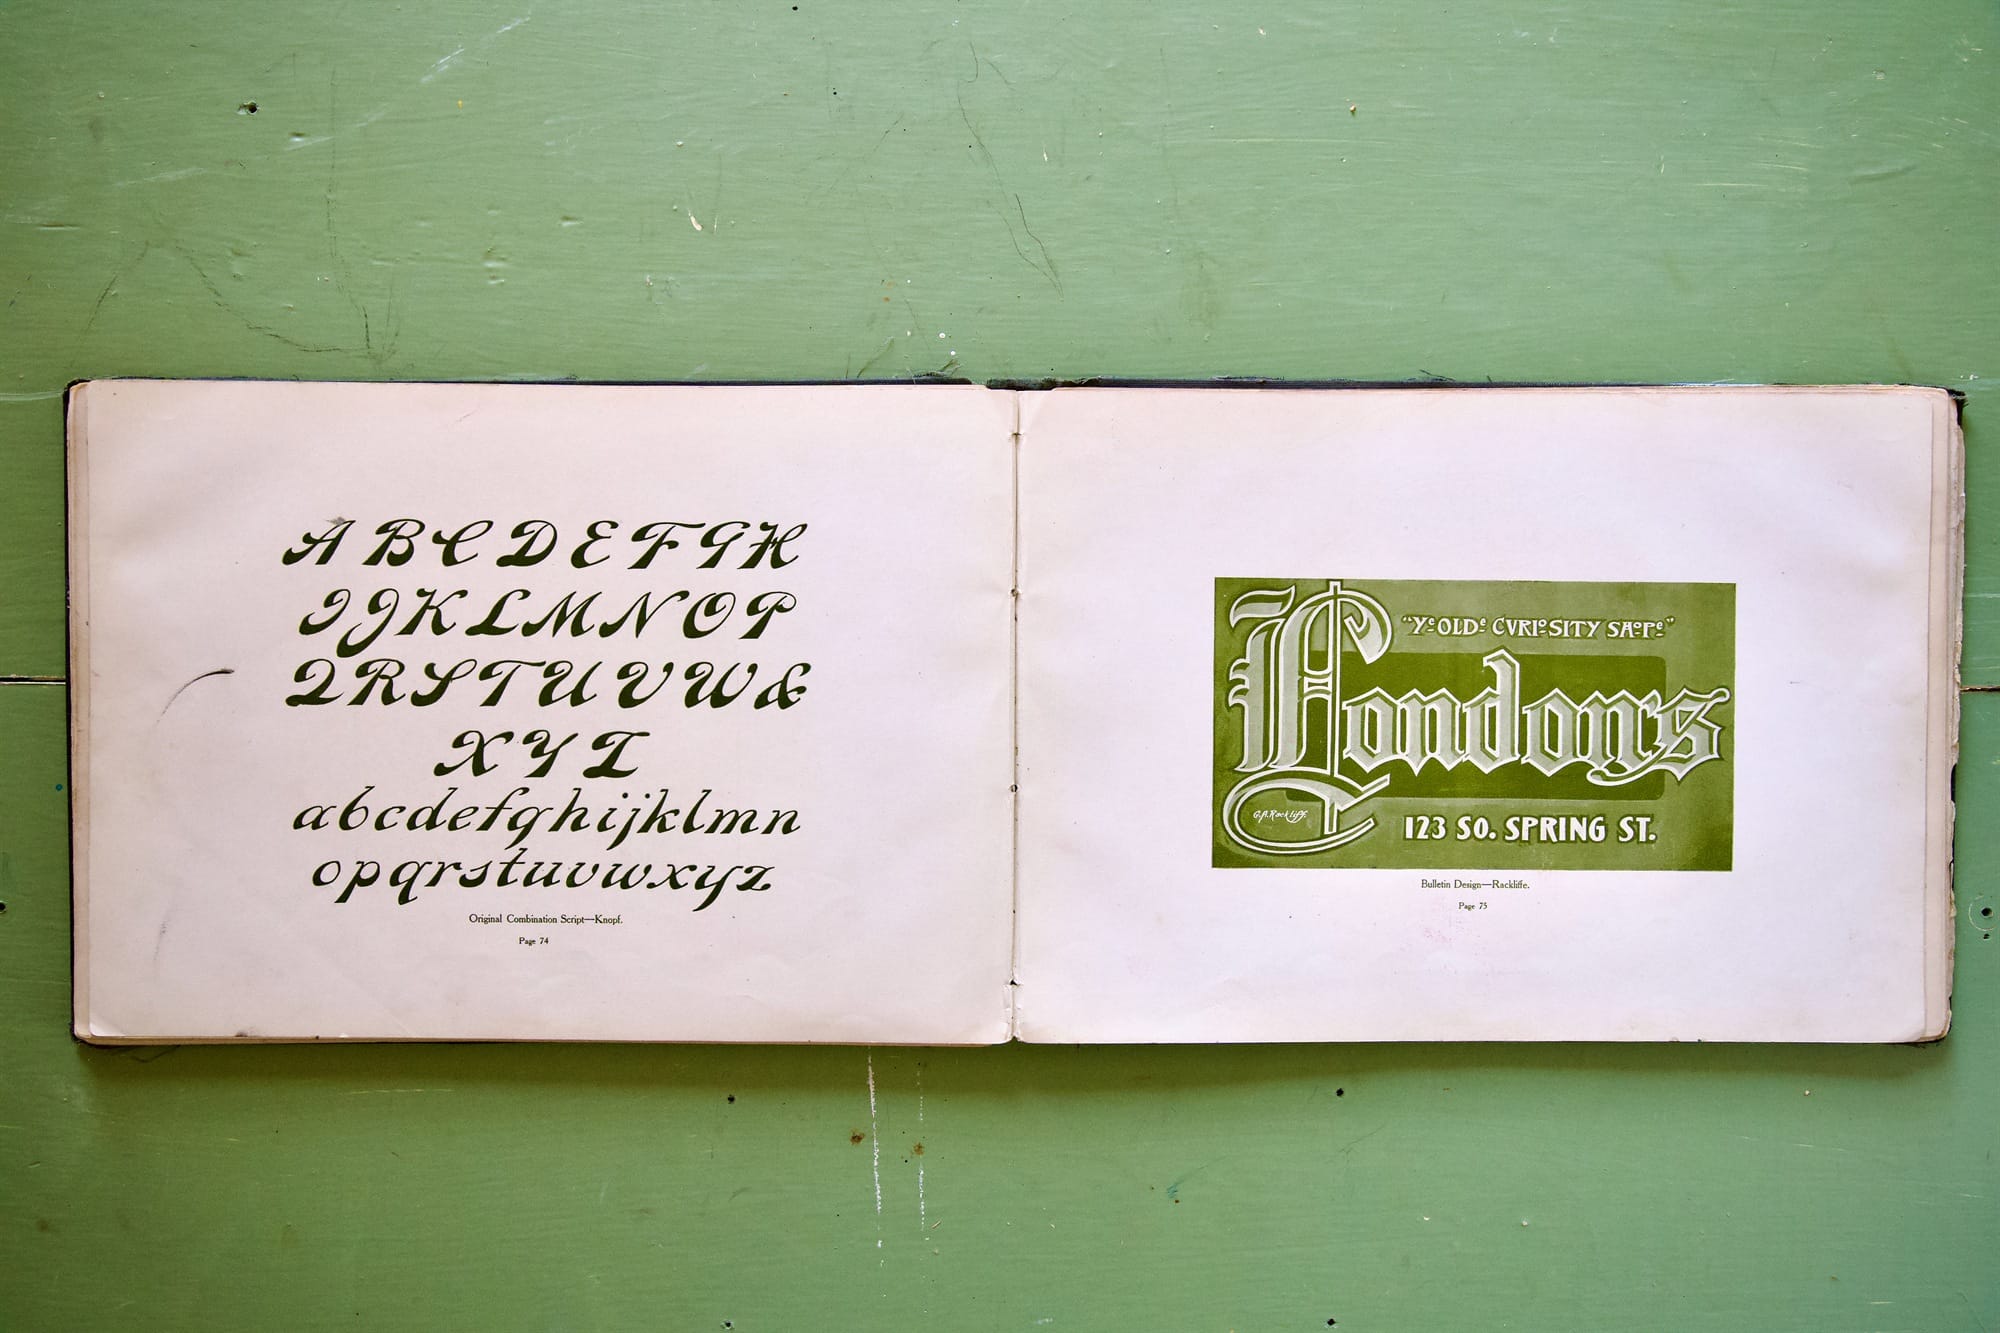 A B C D E F G H
I J K L M N O P
Q R S T U V W &
X Y Z
a b c d e f g h i j k l m n
o p q r s t u v w x y z
Original Combination Script—Knopf.
Page 74
"Ye OLDe CVRIoSITY SHoPe"
London's
G.A. Rackliff.
123 SO. SPRING ST.
Bulletin Design—Rackliffe.
Page 75